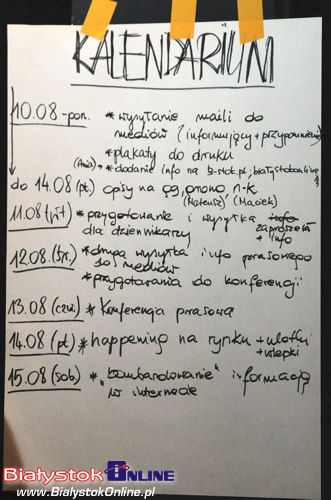 KALENDARIUM
10.08 - pon. * wysyłanie maili do
mediów (informujący + przypomnienie)
* plakaty do druku
(Ania) * dodanie info na b-stok.pl; bialystokonline
do 14.08 (pt) opisy na gg, prono, n-k
(Mateusz) (Maciek)
11.08 (wt) * przygotowanie i wysyłka zaproszeń
dla dziennikarzy + info
12.08 (śr.) * druga wysyłka info prasowego
do mediów
* przygotowania do konferencji
13.08 (czw) * Konferencja prasowa
14.08 (pt) * happening na rynku + ulotki
+ wlepki
15.08 (sob) * „bombardowanie" informacją
w internecie
Białystok ONLINE
www.BialystokOnline.pl